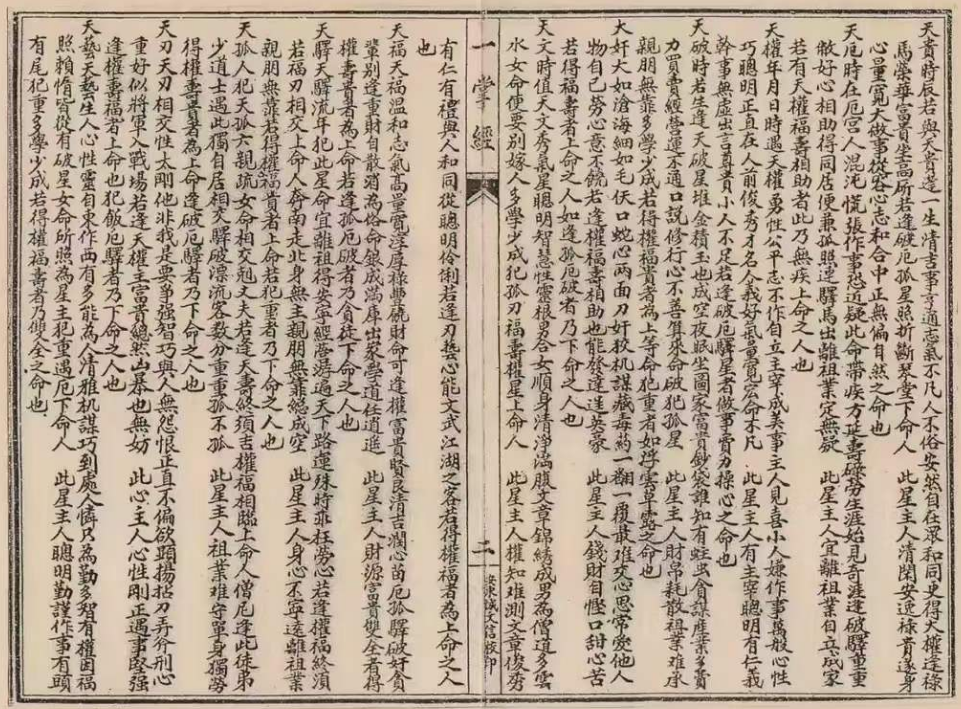 天貴時辰若與天貴逢一生清吉事亨通志氣不凡人不俗安然自在眾和同史得大權逢祿
馬榮華富貴坐高所若逢破厄孤星照折斷琴堂下命人　此星主人清閑安逸祿貴遂身
心量寬大做事從容心志和合中正無偏自然之命也
天厄時在厄宮人混沌慌張作事恐近疑此命帶疾方延壽碌勞生涯始見奇涯逢破驛重重
做好心相助得同居便兼孤照連驛馬出離祖業定無疑　此星主人宜離祖業自立成家
若有天權福壽相助者此乃無疾上命之人也
天權年月日時遇天權勇性公平志不作自立主宰成美事主人見喜小人嫌作事萬般心性
巧聰明正直在人前俊秀才名人義好氣量寬宏命不凡　此星主人有主宰聰明有仁義
幹事無虛出言尊貴小人不足若逢破厄驛星者做事賣力操心之命也
天破時若生逢天破星堆金積玉也成空夜眠坐圖家富貴鈔袋誰知有蛀虫貪謀產業多費
力買賣經營運不通口說修行心不善算來命破犯孤星　此星主人財帛耗散祖業难承
親朋無靠多學少成若得權福貴者為上等命犯重者如浮雲草露之命也
大奸大如滄海細如毛伏口蛇心兩面刀奸狡机謀藏毒药一翻一覆散堆交心思常愛他人
物自己勞心意不饒若逢權福壽相助也能發達逞英豪　此星主人錢財自慳口甜心苦
若得福壽者上命之人如逢孤厄破者乃下命之人也
天文時值天文秀氣星聰明智慧性靈根男合女順身清淨滿腹文章錦綉成男為僧道多雲
水女命便要別嫁人多學少成犯孤刃福壽權星上命人　此星主人權知难測文章俊秀
一掌經
二
有仁有禮與人和同從聰明伶俐若逢刃藝心能文武江湖之客若得權福者為上命之人
也
天福天福温和志氣高量寬浮厚祿豊硗財命可逢權富貴賢良清吉潤心苗厄孤驛破奸貪
輩別逢重財自散消為俗命銀成满庫出家學道任逍遥　此星主人財源富貴雙全者得
權壽貴者為上命若逢孤厄破者乃貧徒下命之人也
天驛天驛流年犯此星命宜離祖得安寧經啓游遍天下路運殊時乖枉勞心若逢權福終須
若福刃相交上命人奔南走北身無主親朋無靠總成空　此星主人身心不寧遠離祖業
親朋無靠若得權福貴者上命若犯重者乃下命之人也
天孤人犯天孤六親疏女命相交剋丈夫若逢天壽終須吉權福相臨上命人僧尼逢此徒弟
少道士遇此獨自居相交驛破漂流客数分重重孤不孤　此星主人祖業难守單身獨勞
得權壽貴者為上命逢破厄驛者乃下命之人也
天刃天刃相交性太剛他非我是要爭强智巧與人無怨恨正直不偏欲顕揚拈刀弄斧刑心
重好似將軍入戰場若逢天權主富貴總然山暴也無妨　此心主人心性剛正遇事堅强
逢權壽福者上命也犯厄驛者乃下命之人也
天藝天藝生人心性靈有東作西有多能為人清雅机謀巧到處人憐只為勤多智有權因福
照賴惰皆從有破星女命所照為星主犯重遇厄下命人　此星主人聰明勤謹作事有頭
有尾犯重多學少成若得權福壽者乃雙全之命也